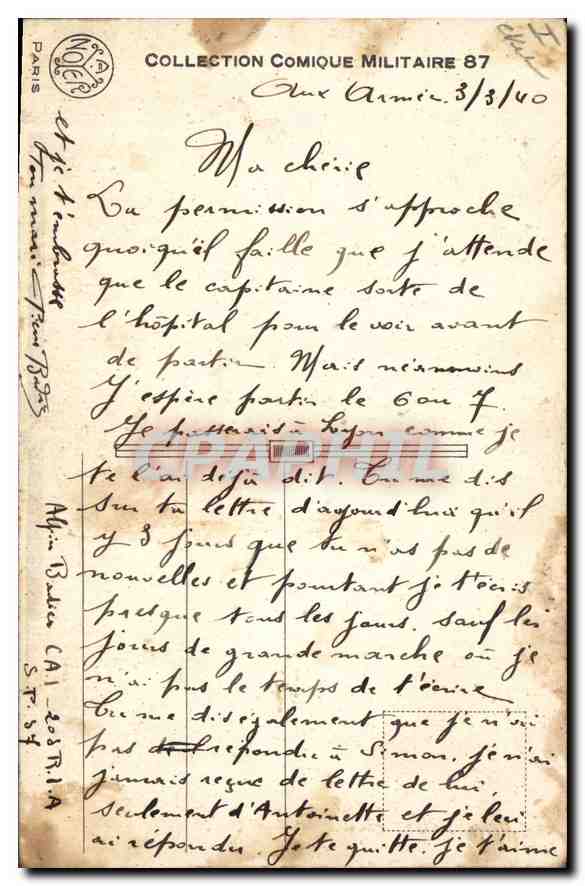 COLLECTION COMIQUE MILITAIRE 87
NOYER
PARIS
Aux Armées 3/3/40
Ma chérie
La permission s'approche
quoiqu'il faille que j'attende
que le capitaine sorte de
l'hôpital pour le voir avant
de partir. Mais néanmoins
J'espère partir le 6 ou 7.
Je passerais à Lyon comme je
te l'ai déjà dit. Tu me dis
sur ta lettre d'aujourd'hui qu'il
y 3 jours que tu n'as pas de
nouvelles et pourtant je t'écris
presque tous les jours, sauf les
jours de grande marche où je
n'ai pas le temps de t'écrire
Tu me dis également que je n'ai
pas répondu à Simon, je n'ai
jamais reçue de lettre de lui,
seulement d'Antoinette et je leur
ai répondu. Je te quitte, je t'aime
et je t'embrasse
Ton mari
CAPHIL
CA1 - 203 R.I.A
S.P. 87